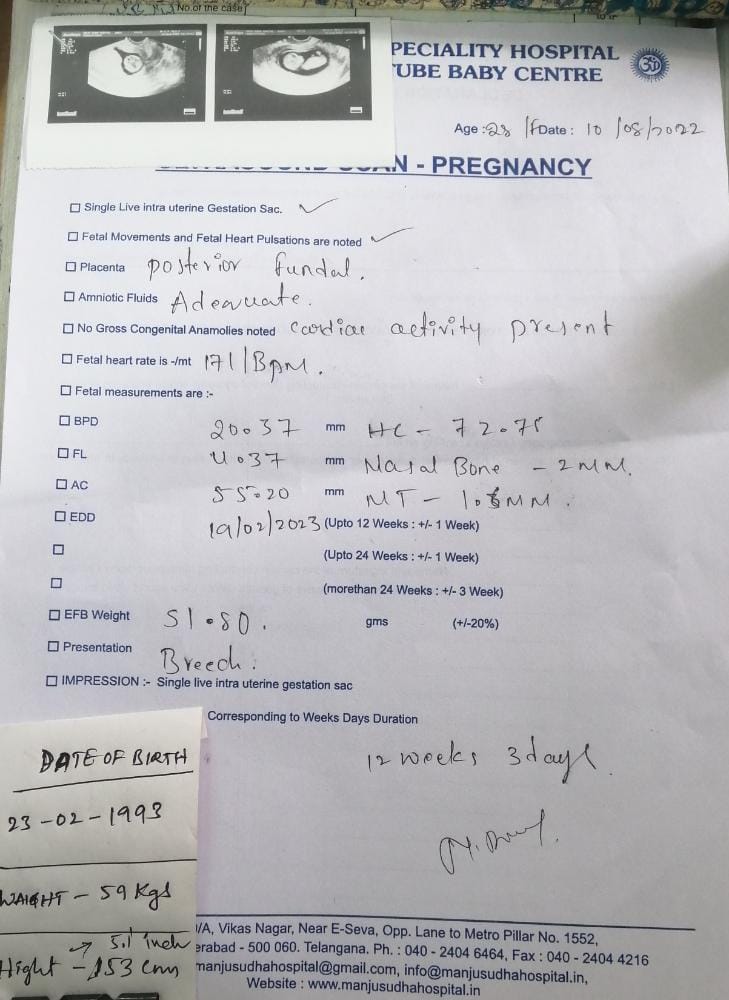 No.of the case
PECIALITY HOSPITAL
UBE BABY CENTRE
Age : 28 /F Date : 10 /08/2022
N - PREGNANCY
Single Live intra uterine Gestation Sac. ✓
Fetal Movements and Fetal Heart Pulsations are noted ✓
Placenta posterior fundal.
Amniotic Fluids Adequate.
No Gross Congenital Anamolies noted Cardiac activity present
Fetal heart rate is -/mt 171/BPM.
Fetal measurements are :-
BPD 20.37 mm HC - 72.78
FL 4.37 mm Nasal Bone - 2MM.
AC 55.20 mm NT - 1.6MM.
EDD 19/02/2023 (Upto 12 Weeks : +/- 1 Week)
(Upto 24 Weeks : +/- 1 Week)
(morethan 24 Weeks : +/- 3 Week)
EFB Weight 51.80. gms (+/-20%)
Presentation Breech.
IMPRESSION :- Single live intra uterine gestation sac
Corresponding to Weeks Days Duration
12 weeks 3 days
DATE OF BIRTH
23-02-1993
WAIGHT - 59 Kgs
→ 5.1 inch
Hight - 153 cm
/A, Vikas Nagar, Near E-Seva, Opp. Lane to Metro Pillar No. 1552,
erabad - 500 060. Telangana. Ph. : 040 - 2404 6464, Fax : 040 - 2404 4216
manjusudhahospital@gmail.com, info@manjusudhahospital.in,
Website : www.manjusudhahospital.in